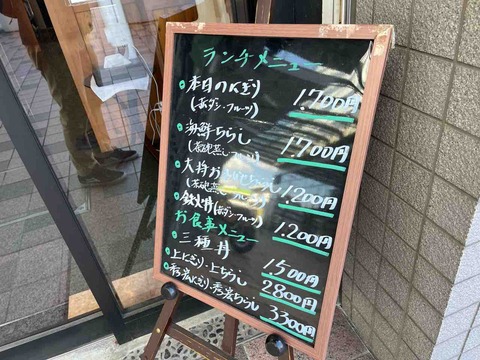 ランチメニュー
本日のにぎり 1.700円
(赤ダシ・フルーツ)
海鮮ちらし 1700円
(茶碗蒸し・フルーツ)
大将おまかせちらし 1.200円
(茶碗蒸し・フルーツ)
鉄火丼(赤ダシ・フルーツ) 1.200円
お食事メニュー
三種丼 1,500円
上にぎり・上ちらし 2800円
にぎり・ちらし 3300円